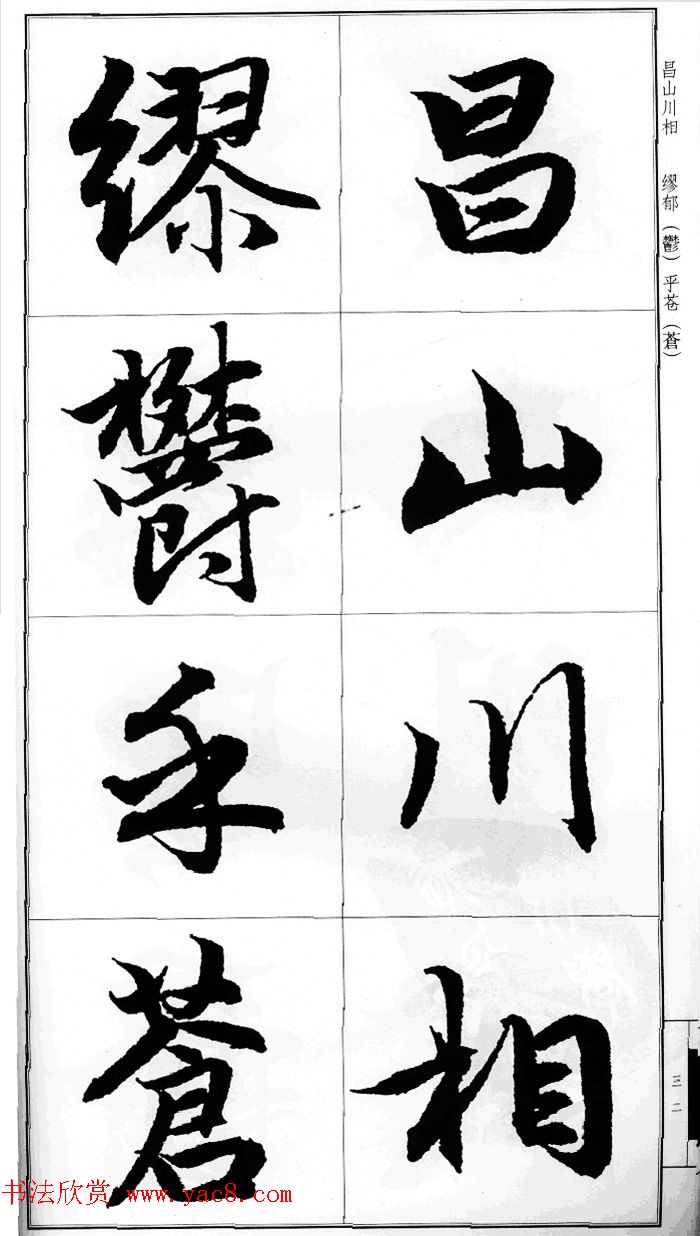 昌山川相
繆鬱乎蒼
昌山川相 缪郁(鬱)乎苍(蒼)
三二
书法欣赏 www.yac8.com